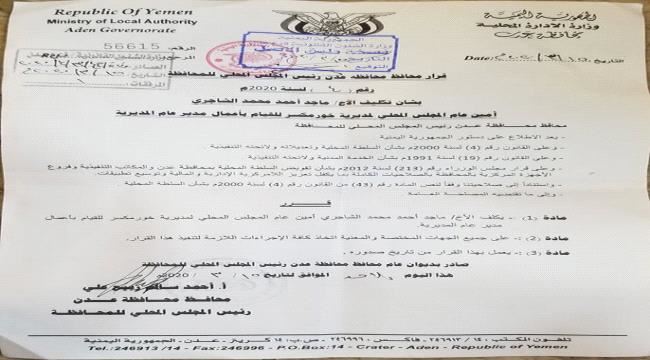 Republic Of Yemen
Ministry of Local Authority
Aden Governorate
الجمهورية اليمنية
وزارة الإدارة المحلية
محافظة عدن
56615
الرقم
Date:
التاريخ
الجمهورية اليمنية
وزارة الشئون القانونية
قرار محافظ محافظة عدن رئيس المجلس المحلي للمحافظة
رقم ( ) لسنة 2020م
بشأن تكليف الأخ/ ماجد أحمد محمد الشاجري
أمين عام المجلس المحلي لمديرية خورمكسر للقيام بأعمال مدير عام المديرية
محافظ محافظة عدن رئيس المجلس المحلي للمحافظة
- بعد الاطلاع على دستور الجمهورية اليمنية
- وعلى القانون رقم (4) لسنة 2000م بشأن السلطة المحلية وتعديلاته ولائحته التنفيذية
- وعلى القانون رقم (19) لسنة 1991م بشأن الخدمة المدنية ولائحته التنفيذية
- وعلى قرار مجلس الوزراء رقم (213) لسنة 2012م بشأن تفويض السلطة المحلية بمحافظة عدن والمكاتب التنفيذية وفروع
الأجهزة المركزية بالمحافظة بالصلاحيات الكاملة بما يكفل تعزيز اللامركزية الإدارية والمالية وتوسيع تطبيقات
- واستناداً إلى صلاحيتنا وفقاً لنص المادة رقم (43) من القانون رقم (4) لسنة 2000م بشأن السلطة المحلية
- وإلى ما تقتضيه المصلحة العامة
قرر
مادة (1) :- يكلف الأخ/ ماجد أحمد محمد الشاجري أمين عام المجلس المحلي لمديرية خورمكسر للقيام بأعمال
مدير عام المديرية.
مادة (2) :- على جميع الجهات المختصة والمعنية اتخاذ كافة الإجراءات اللازمة لتنفيذ هذا القرار.
مادة (3) :- يعمل بهذا القرار من تاريخ صدوره.
صادر بديوان عام محافظ محافظة عدن رئيس المجلس المحلي للمحافظة
هذا اليوم الموافق لتاريخ ١٥ / ٣ / 2020م
أ. أحمد سالم ربيع علي
محافظ محافظة عدن
رئيس المجلس المحلي للمحافظة
تلفون المكتب: ٢٤٦٩١٣/١٤ فاكس: ٢٤٦٩٩٦ - ص.ب: ١٤ كريتر - عدن - الجمهورية اليمنية
Tel.:246913 /14 - Fax:246996 - P.O.Box:14 - Crater - Aden - Republic of Yemen